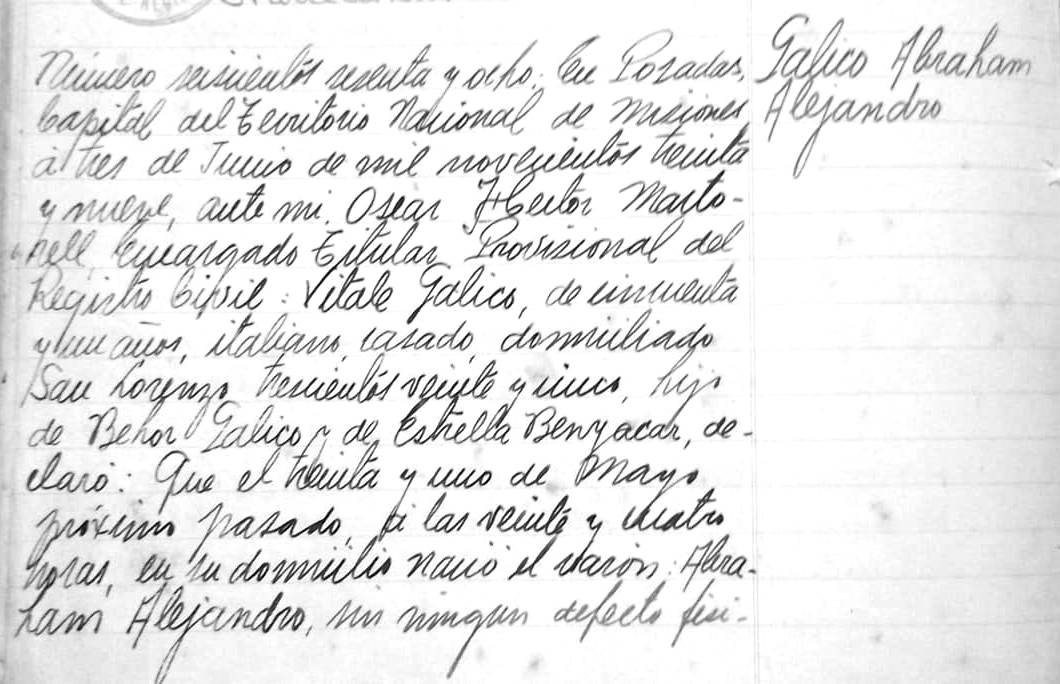 Número seiscientos sesenta y ocho. En Posadas,
Capital del Territorio Nacional de Misiones
á tres de Junio de mil novecientos treinta
y nueve, ante mi, Oscar Hector Marto-
rell, Encargado Titular Provisional del
Registro Civil: Vitale Galico, de cincuenta
y un años, italiano, casado, domiciliado
San Lorenzo trescientos veinte y cinco, hijo
de Behor Galico y de Estrella Benyacar, de-
claró: Que el treinta y uno de Mayo
próximo pasado, á las veinte y cuatro
horas, en su domicilio nació el varón: Abra-
ham Alejandro, sin ningun defecto fisi-
Galico Abraham
Alejandro